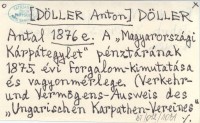 [DÖLLER Anton] DÖLLER
Antal 1876 e. A „Magyarországi
Kárpátegylet" pénztárának
1875. évi forgalom-kimutatása
és vagyonmérlege. (Verkehr-
und Vermögens-Ausweis des
„Ungarischen Karpathen-Vereines"